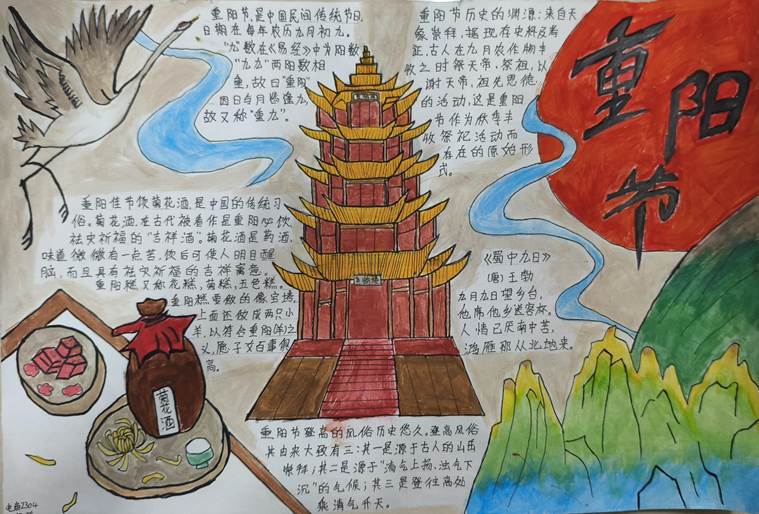 重阳节
重阳节,是中国民间传统节日,
日期在每年农历九月初九。
"九"数在《易经》中为阳数
"九九"两阳数相
重,故曰"重阳"
因日与月皆逢九,
故又称"重九"。
重阳节历史的渊源:来自天
象崇拜,据现存史料及考
证,古人在九月农作物丰
收之时祭天帝、祭祖,以
谢天帝、祖先恩德
的活动,这是重阳
节作为秋季丰
收祭祀活动而
存在的原始形
式。
重阳佳节饮菊花酒,是中国的传统习
俗。菊花酒,在古代被看作是重阳必饮、
祛灾祈福的"吉祥酒"。菊花酒是药酒,
味道微微有一点苦,饮后可使人明目醒
脑,而且具有祛灾祈福的吉祥寓意。
重阳糕又称花糕、菊糕、五色糕。
重阳糕要做的像宝塔,
上面还做成两只小
羊,以符合重阳(羊)之
头,愿子女百事俱
高。
《蜀中九日》
(唐)王勃
九月九日望乡台,
他席他乡送客杯。
人情已厌南中苦,
鸿雁那从北地来。
菊花酒
重阳节登高的风俗历史悠久。登高风俗
其由来大致有三:其一是源于古人的山岳
崇拜;其二是源于"清气上扬、浊气下
沉"的气候;其三是登往高处
乘清气升天。
2304